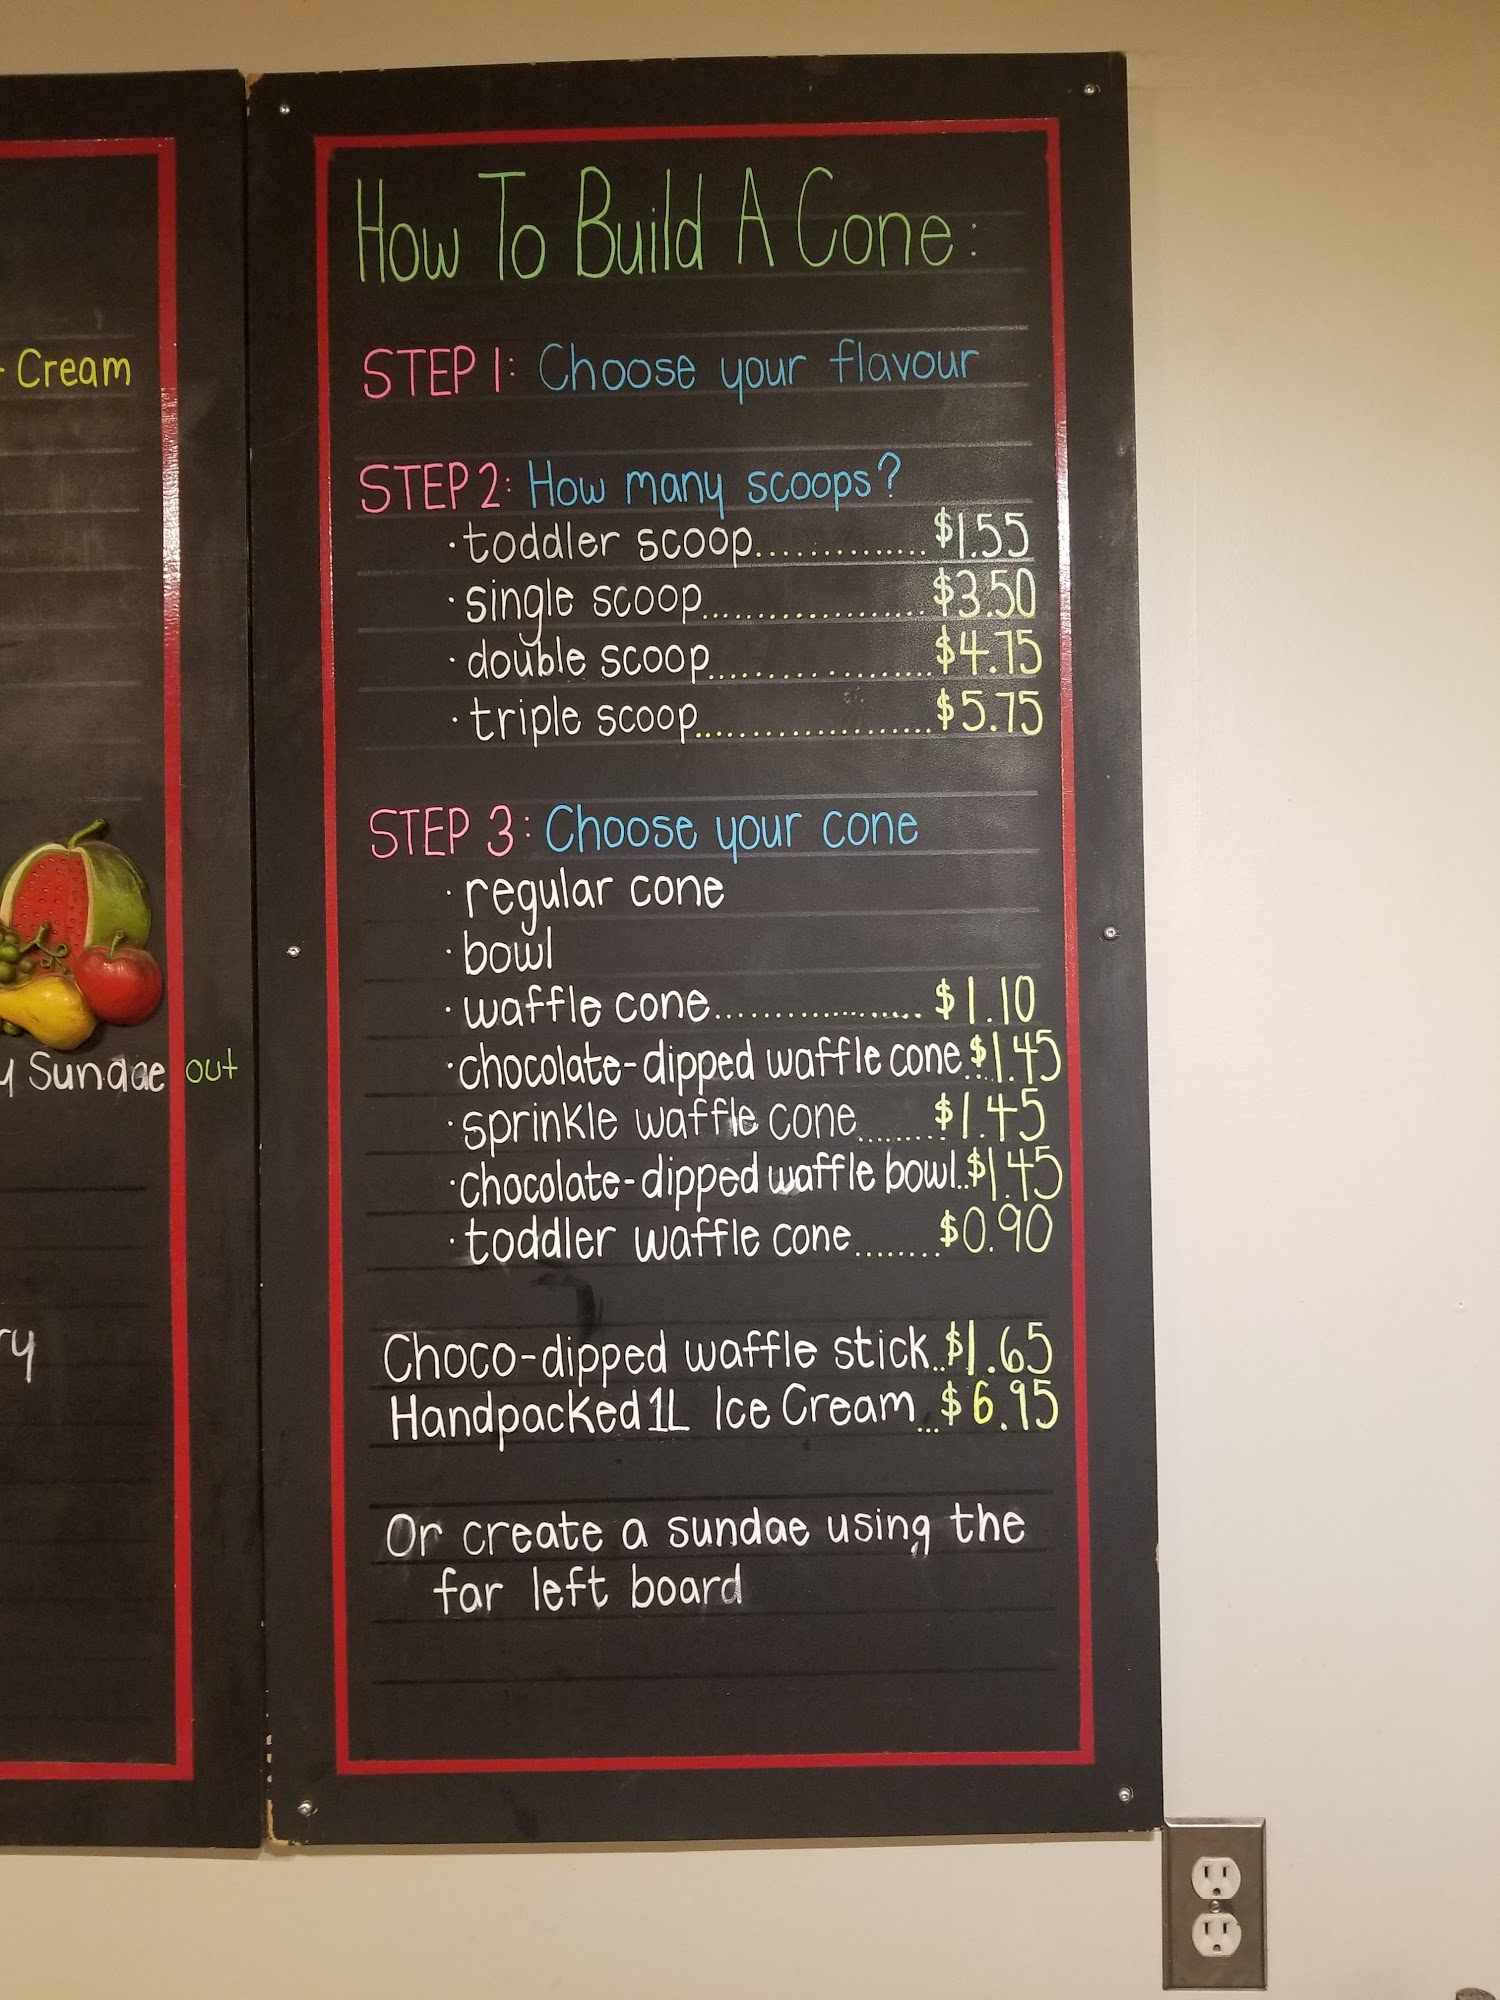 Cream
Sundae out
How To Build A Cone:
STEP 1: Choose your flavour
STEP 2: How many scoops?
· toddler scoop.............$1.55
· single scoop..................$3.50
· double scoop..................$4.75
· triple scoop...................$5.75
STEP 3: Choose your cone
· regular cone
· bowl
· waffle cone..................$1.10
· chocolate-dipped waffle cone...$1.45
· sprinkle waffle cone........$1.45
· chocolate-dipped waffle bowl..$1.45
· toddler waffle cone........$0.90
Choco-dipped waffle stick..$1.65
Handpacked 1L Ice Cream...$6.95
Or create a sundae using the
far left board